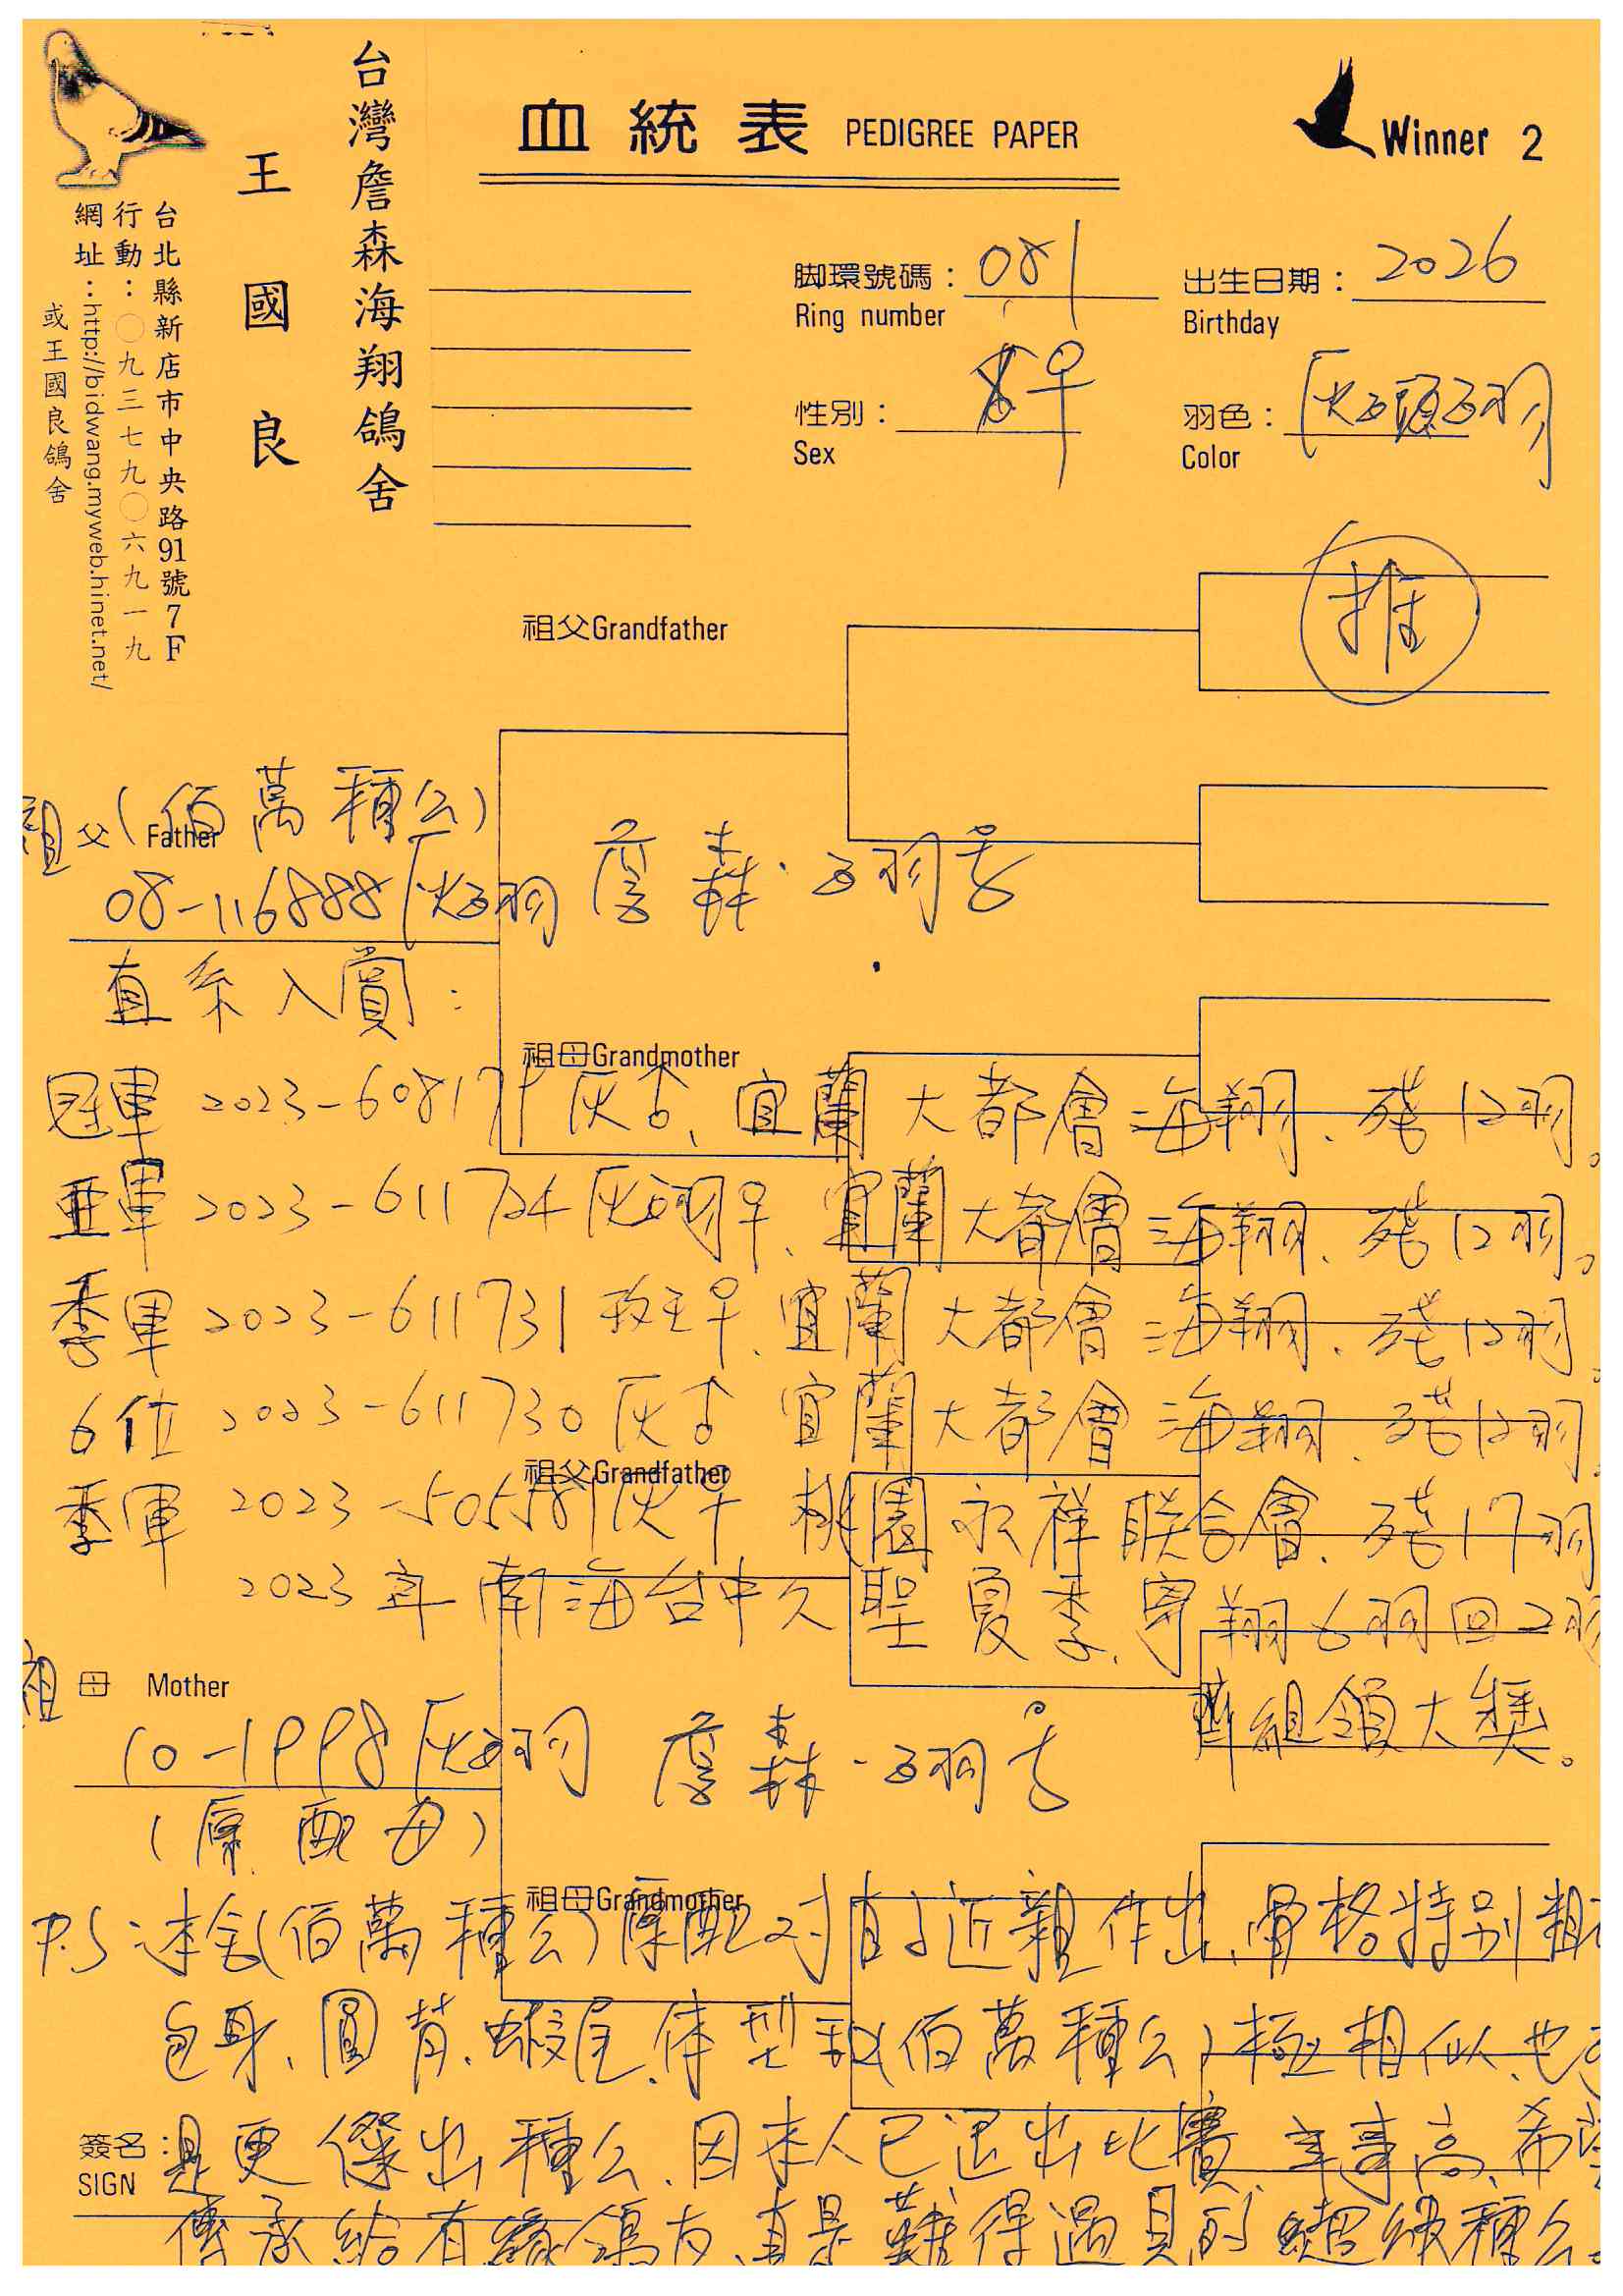 台灣詹森海翔鴿舍
王國良
台北縣新店市中央路91號7F
行動：〇九三七九〇六九一九
網址：http://bidwang.myweb.hinet.net/
或王國良鴿舍
血統表 PEDIGREE PAPER
Winner 2
脚環號碼： 081
Ring number
出生日期： 2026
Birthday
性別： ♀
Sex
羽色： 灰石頭石羽
Color
推
祖父Grandfather
(佰萬種公)
祖父 Father
08-116888灰石羽 詹森·石羽号
直系入賞：
祖母Grandmother
冠軍 2023-608171灰♂、宜蘭大都會海翔、殘12羽。
亜軍 2023-611724灰石羽♀、宜蘭大都會海翔、殘12羽。
季軍 2023-611731 斑♀、宜蘭大都會海翔、殘12羽。
6位 2023-611730灰♂ 宜蘭大都會海翔、殘12羽。
祖父Grandfather
季軍 2023-505581灰♀ 桃園永祥联合會、殘17羽
2023年南海台中久聖夏季、寄翔6羽回2羽
齊組領大獎。
祖母 Mother
10-1998灰石羽 詹森·石羽号
(原配母)
祖母Grandmother
P.S：本舍(佰萬種公)原配對直子近親作出、骨格特別粗
包身、圓背、蝦尾、体型和(佰萬種公)極相似、也
是更傑出種公、因本人已退出比賽、年事高、希望
簽名：
SIGN
傳承給有緣鴿友、真是難得遇見的超級種公。